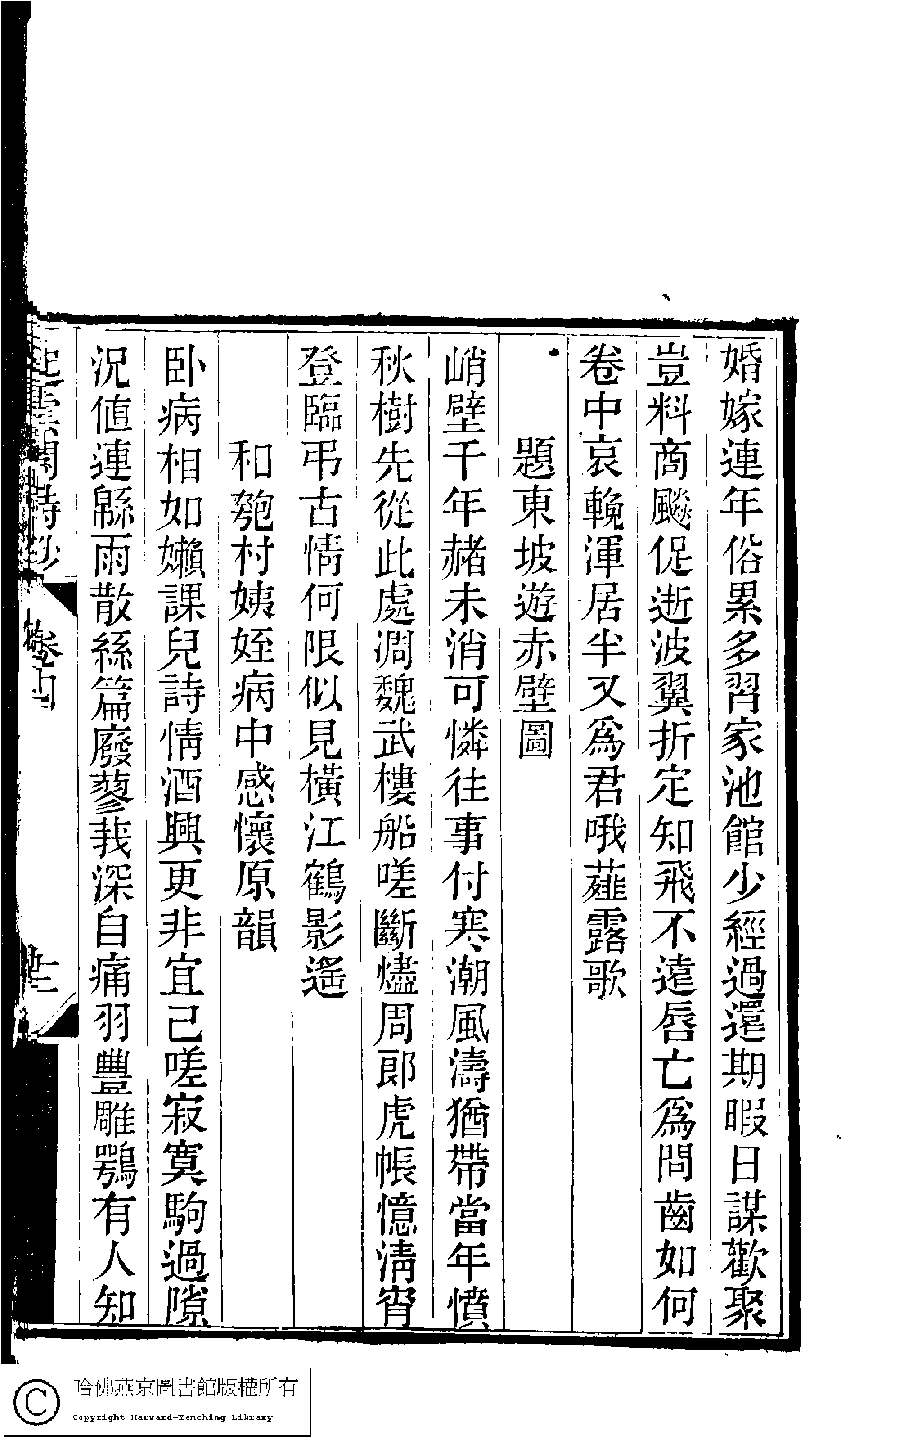 婚嫁連年俗累多習家池館少經過還期暇日謀歡聚
豈料商颷促逝波翼折定知飛不遠唇亡為問齒如何
卷中哀輓渾居半又為君哦薤露歌
題東坡遊赤壁圖
峭壁千年赭未消可憐往事付寒潮風濤猶帶當年憤
秋樹先從此處凋魏武樓船嗟斷燼周郎虎帳憶清宵
登臨弔古情何限似見橫江鶴影遙
和匏村姨姪病中感懷原韻
卧病相如嬾課兒詩情酒興更非宜已嗟寂寞駒過隙
況值連緜雨散絲篇廢蓼莪深自痛羽豐雕鶚有人知
起雲閣詩鈔
卷四
十二
哈佛燕京圖書館版權所有
Copyright Harvard-Yenching Library